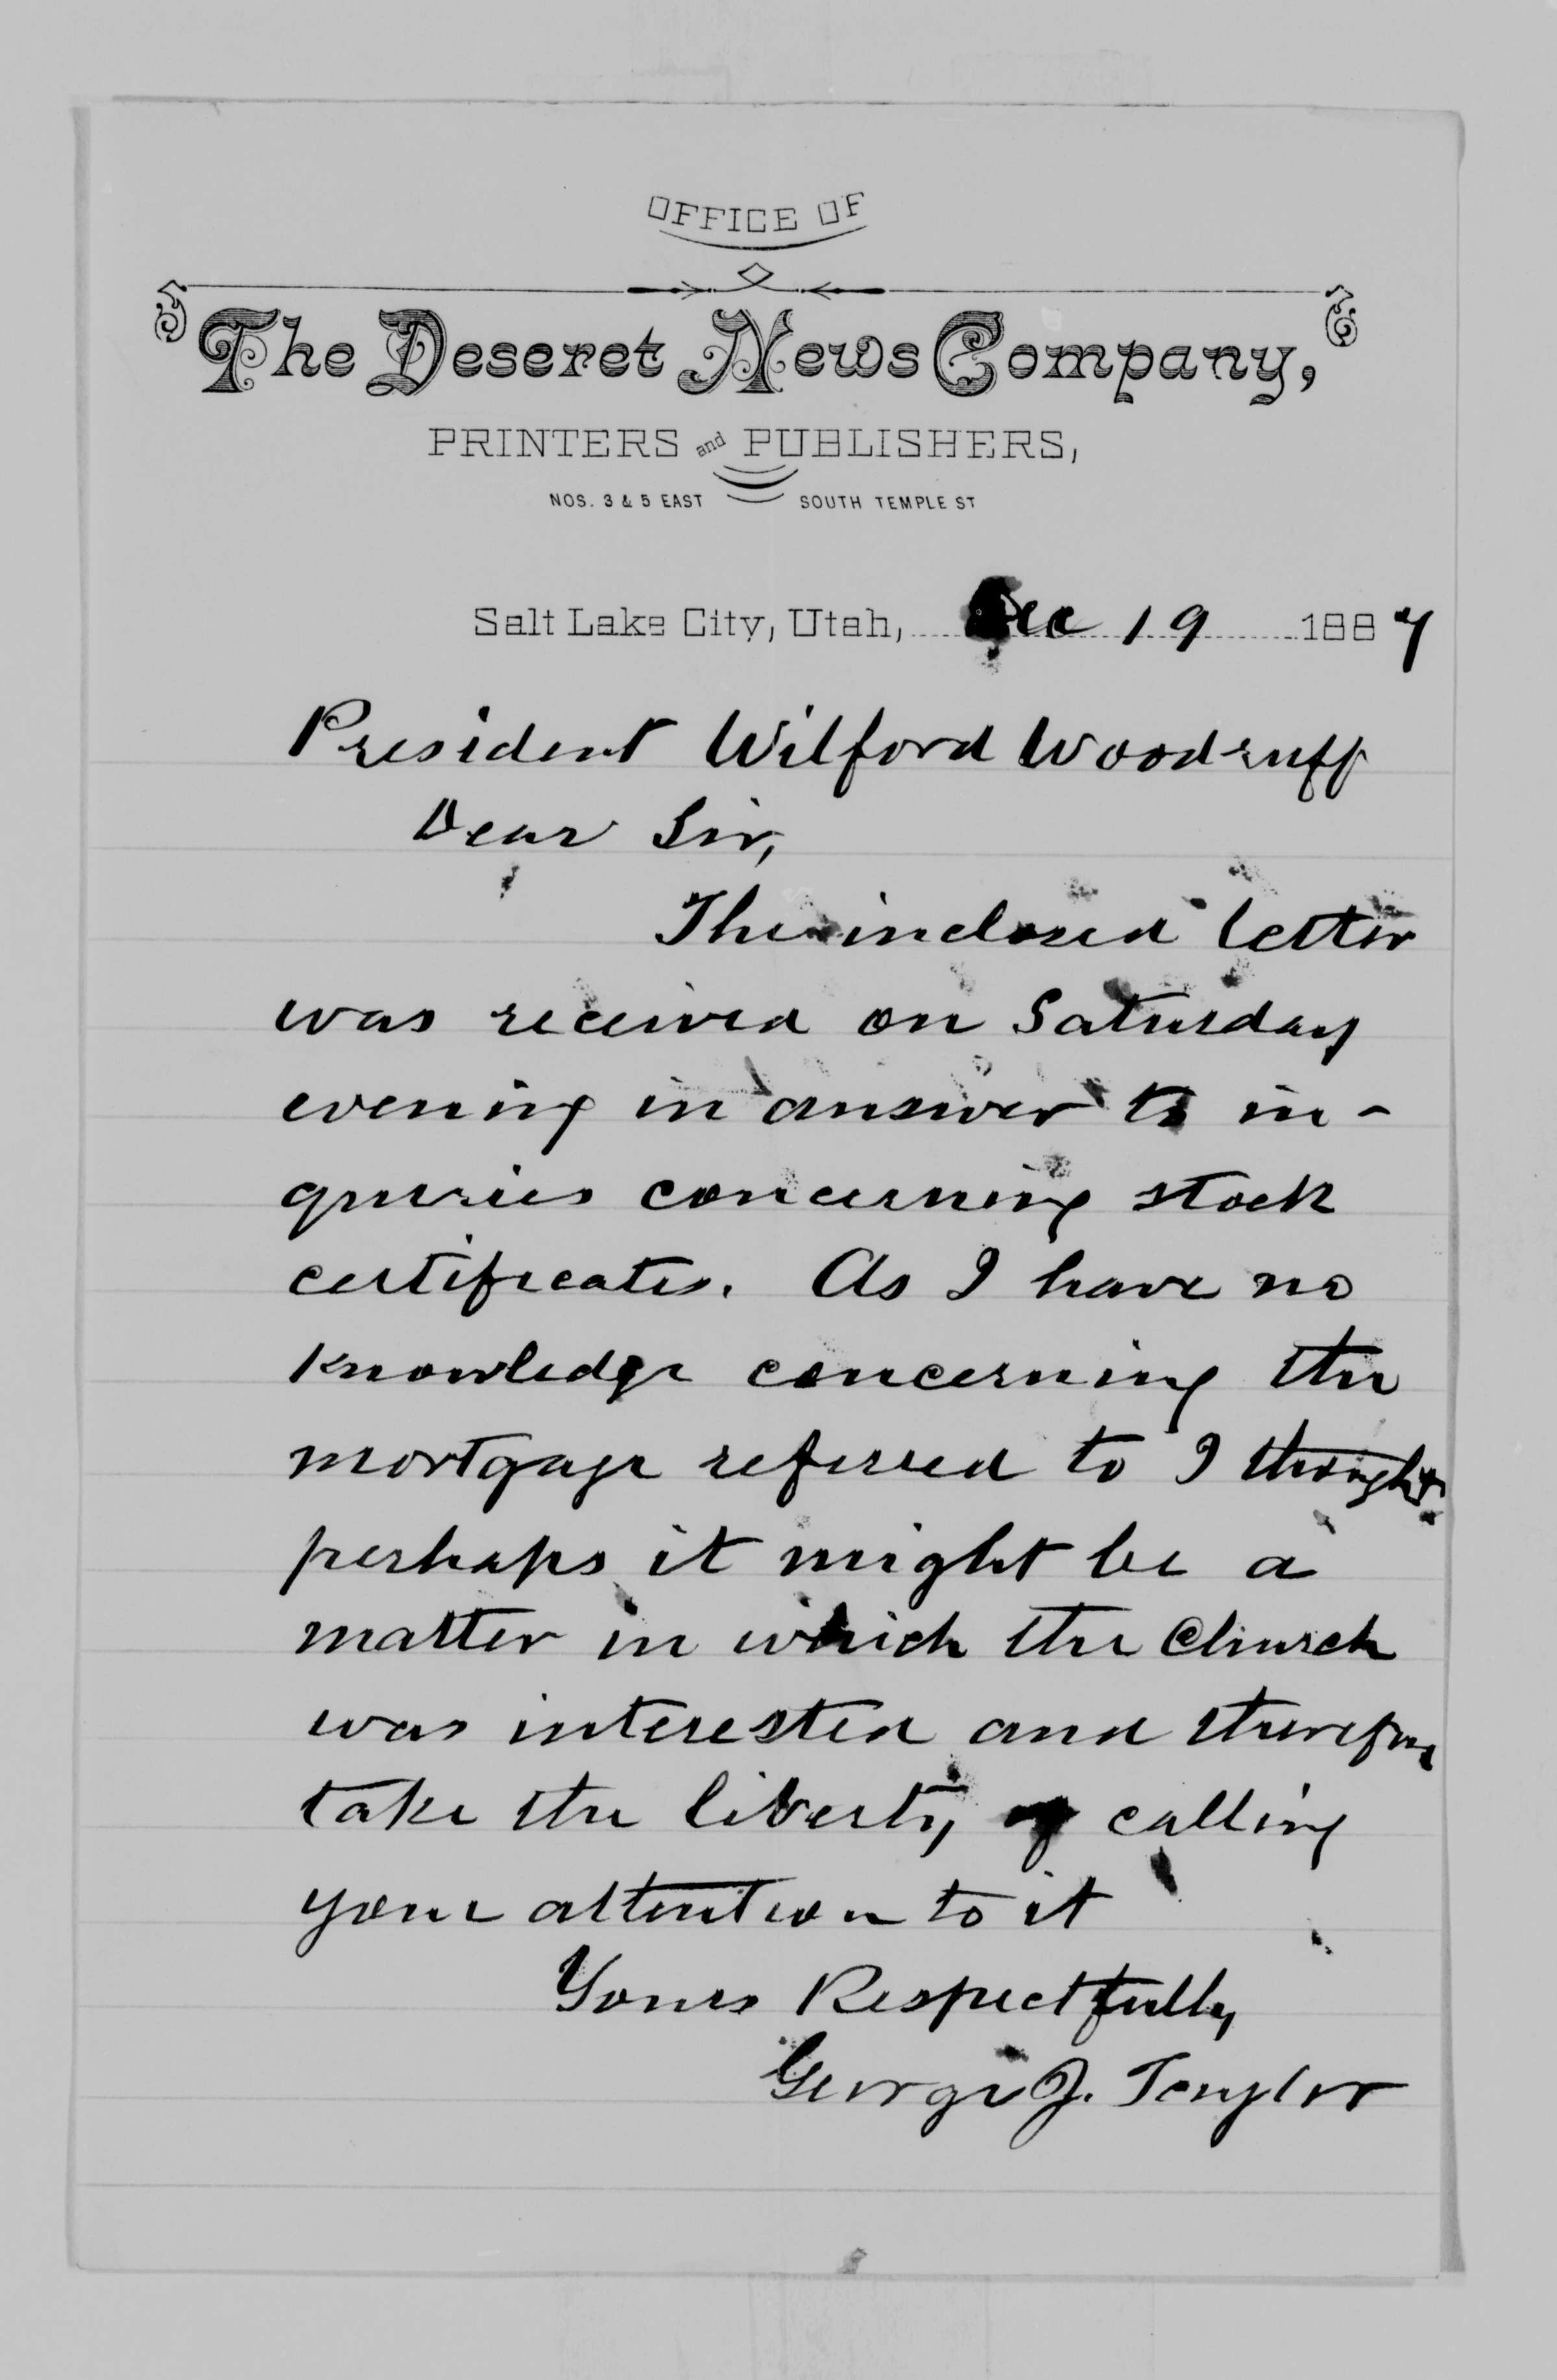 OFFICE OF
The Deseret News Company,
PRINTERS and PUBLISHERS,
NOS. 3 & 5 EAST SOUTH TEMPLE ST
Salt Lake City, Utah, Dec 19 1887
President Wilford Woodruff
Dear Sir,
The inclosed letter
was received on Saturday
evening in answer to in-
quuries concerning stock
certificates. As I have no
knowledge concerning the
mortgage referred to I thought
perhaps it might be a
matter in which the Church
was interested and therefore
take the liberty of calling
your attention to it
Yours Respectfully
George J. Taylor